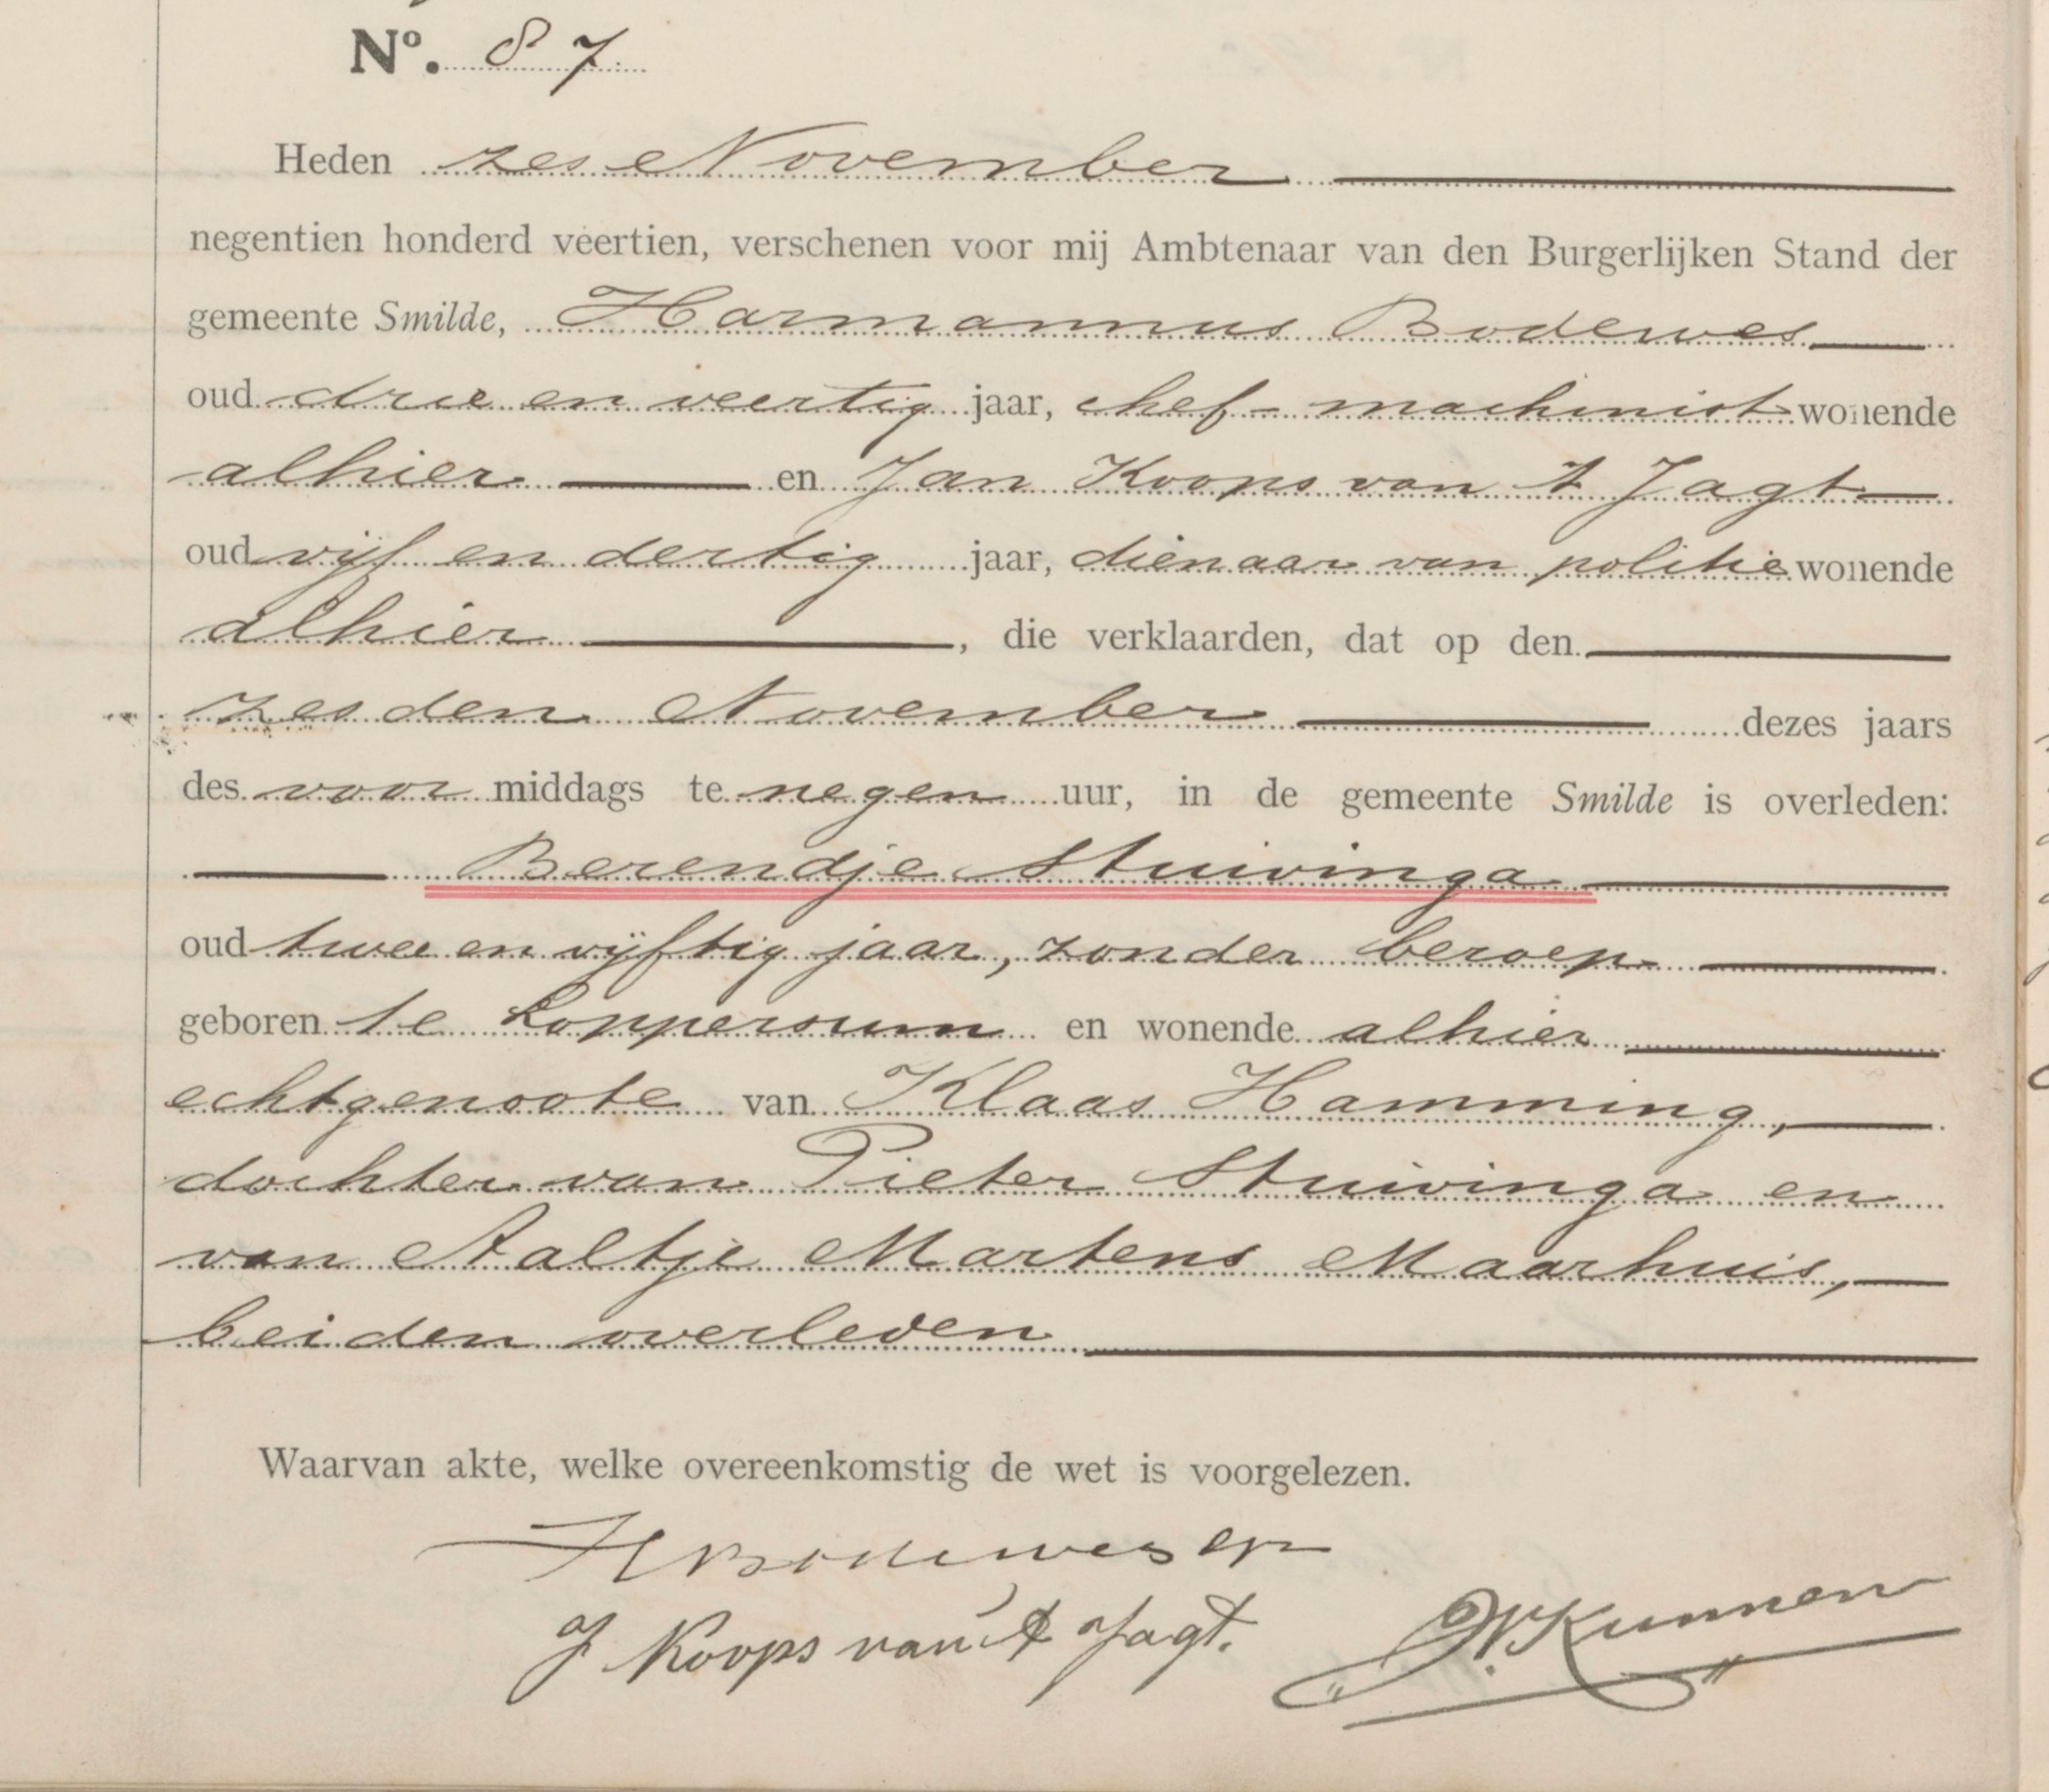 Nº. 87
Heden zes November
negentien honderd veertien, verschenen voor mij Ambtenaar van den Burgerlijken Stand der
gemeente Smilde, Harmannus Bodewes
oud drie en veertig jaar, chef-machinist wonende
alhier en Jan Koops van t Jagt
oud vijf en dertig jaar, dienaar van politie wonende
alhier, die verklaarden, dat op den
zesden November dezes jaars
des voor middags te negen uur, in de gemeente Smilde is overleden:
Berendje Stuivinga
oud twee en vijftig jaar, zonder beroep
geboren te Loppersum en wonende alhier
echtgenoote van Klaas Hamming,
dochter van Pieter Stuivinga en
van Aaltje Martens Maarhuis,
beiden overleden
Waarvan akte, welke overeenkomstig de wet is voorgelezen.
H Bodewes
J Koops van 't Jagt.
Kunnen